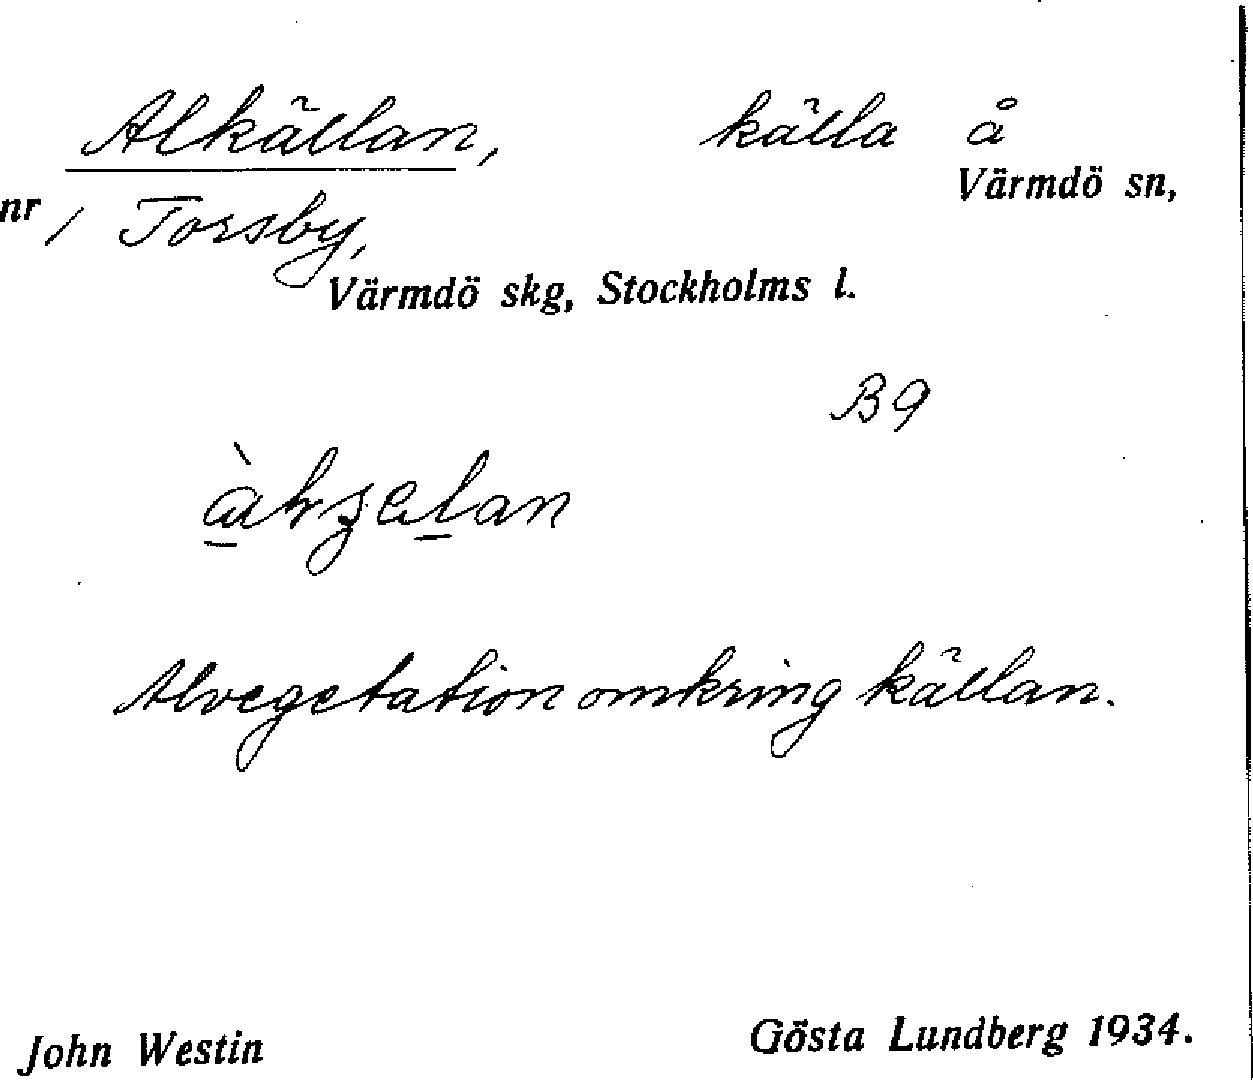 Alkällan, källa å
Värmdö sn,
nr / Torsby,
Värmdö skg, Stockholms l.
B9
Alvegetation omkring källan.
John Westin Gösta Lundberg 1934.